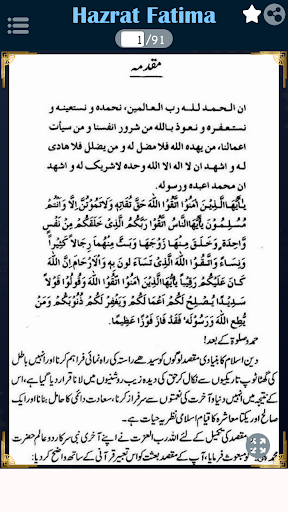 Hazrat Fatima
1/91
مقدمہ
ان الحمد للہ رب العالمین، نحمدہ و نستعینہ و
نستغفرہ و نعوذ باللہ من شرور انفسنا و من سیأت
اعمالنا، من یھدہ اللہ فلا مضل لہ و من یضلل فلا ھادی
لہ و اشھد ان لا الہ الا اللہ وحدہ لاشریک لہ و اشھد
ان محمد اعبدہ ورسولہ.
يٰٓاَيُّهَا الَّذِيْنَ اٰمَنُوا اتَّقُوا اللّٰهَ حَقَّ تُقَاتِهٖ وَلَا تَمُوْتُنَّ اِلَّا وَاَنْتُمْ
مُّسْلِمُوْنَ يٰٓاَيُّهَا النَّاسُ اتَّقُوْا رَبَّكُمُ الَّذِيْ خَلَقَكُمْ مِّنْ نَّفْسٍ
وَّاحِدَةٍ وَّخَلَقَ مِنْهَا زَوْجَهَا وَبَثَّ مِنْهُمَا رِجَالًا كَثِيْرًا
وَّنِسَآءً وَاتَّقُوا اللّٰهَ الَّذِيْ تَسَآءَلُوْنَ بِهٖ وَالْاَرْحَامَ اِنَّ اللّٰهَ
كَانَ عَلَيْكُمْ رَقِيْبًا يٰٓاَيُّهَا الَّذِيْنَ اٰمَنُوا اتَّقُوا اللّٰهَ وَقُوْلُوْا قَوْلًا
سَدِيْدًا يُّصْلِحْ لَكُمْ اَعْمَالَكُمْ وَيَغْفِرْ لَكُمْ ذُنُوْبَكُمْ وَمَنْ
يُّطِعِ اللّٰهَ وَرَسُوْلَهٗ فَقَدْ فَازَ فَوْزًا عَظِيْمًا.
حمد و صلوٰۃ کے بعد!
دین اسلام کا بنیادی مقصد لوگوں کو سیدھے راستہ کی راہ نمائی فراہم کرنا اور انہیں باطل
کی گھٹا ٹوپ تاریکیوں سے نکال کر حق کی دیدہ زیب روشنیوں میں لانا قرار دیا گیا ہے، اس
کے نتیجہ میں انہیں دنیا و آخرت کی نعمتوں سے سرفراز کرنا، سعادت دائمی کا حامل بنانا اور ایک
صالح اور یکتا معاشرہ کا قیام اسلامی نظریہ حیات ہے۔
مقصد کی تکمیل کے لئے اللہ رب العزت نے اپنے آخری نبی سرکار دو عالم حضرت
محمد مبعوث فرمایا، آپ کے مقصد بعثت کو اس تعبیر قرآنی کے ساتھ واضح کر دیا۔